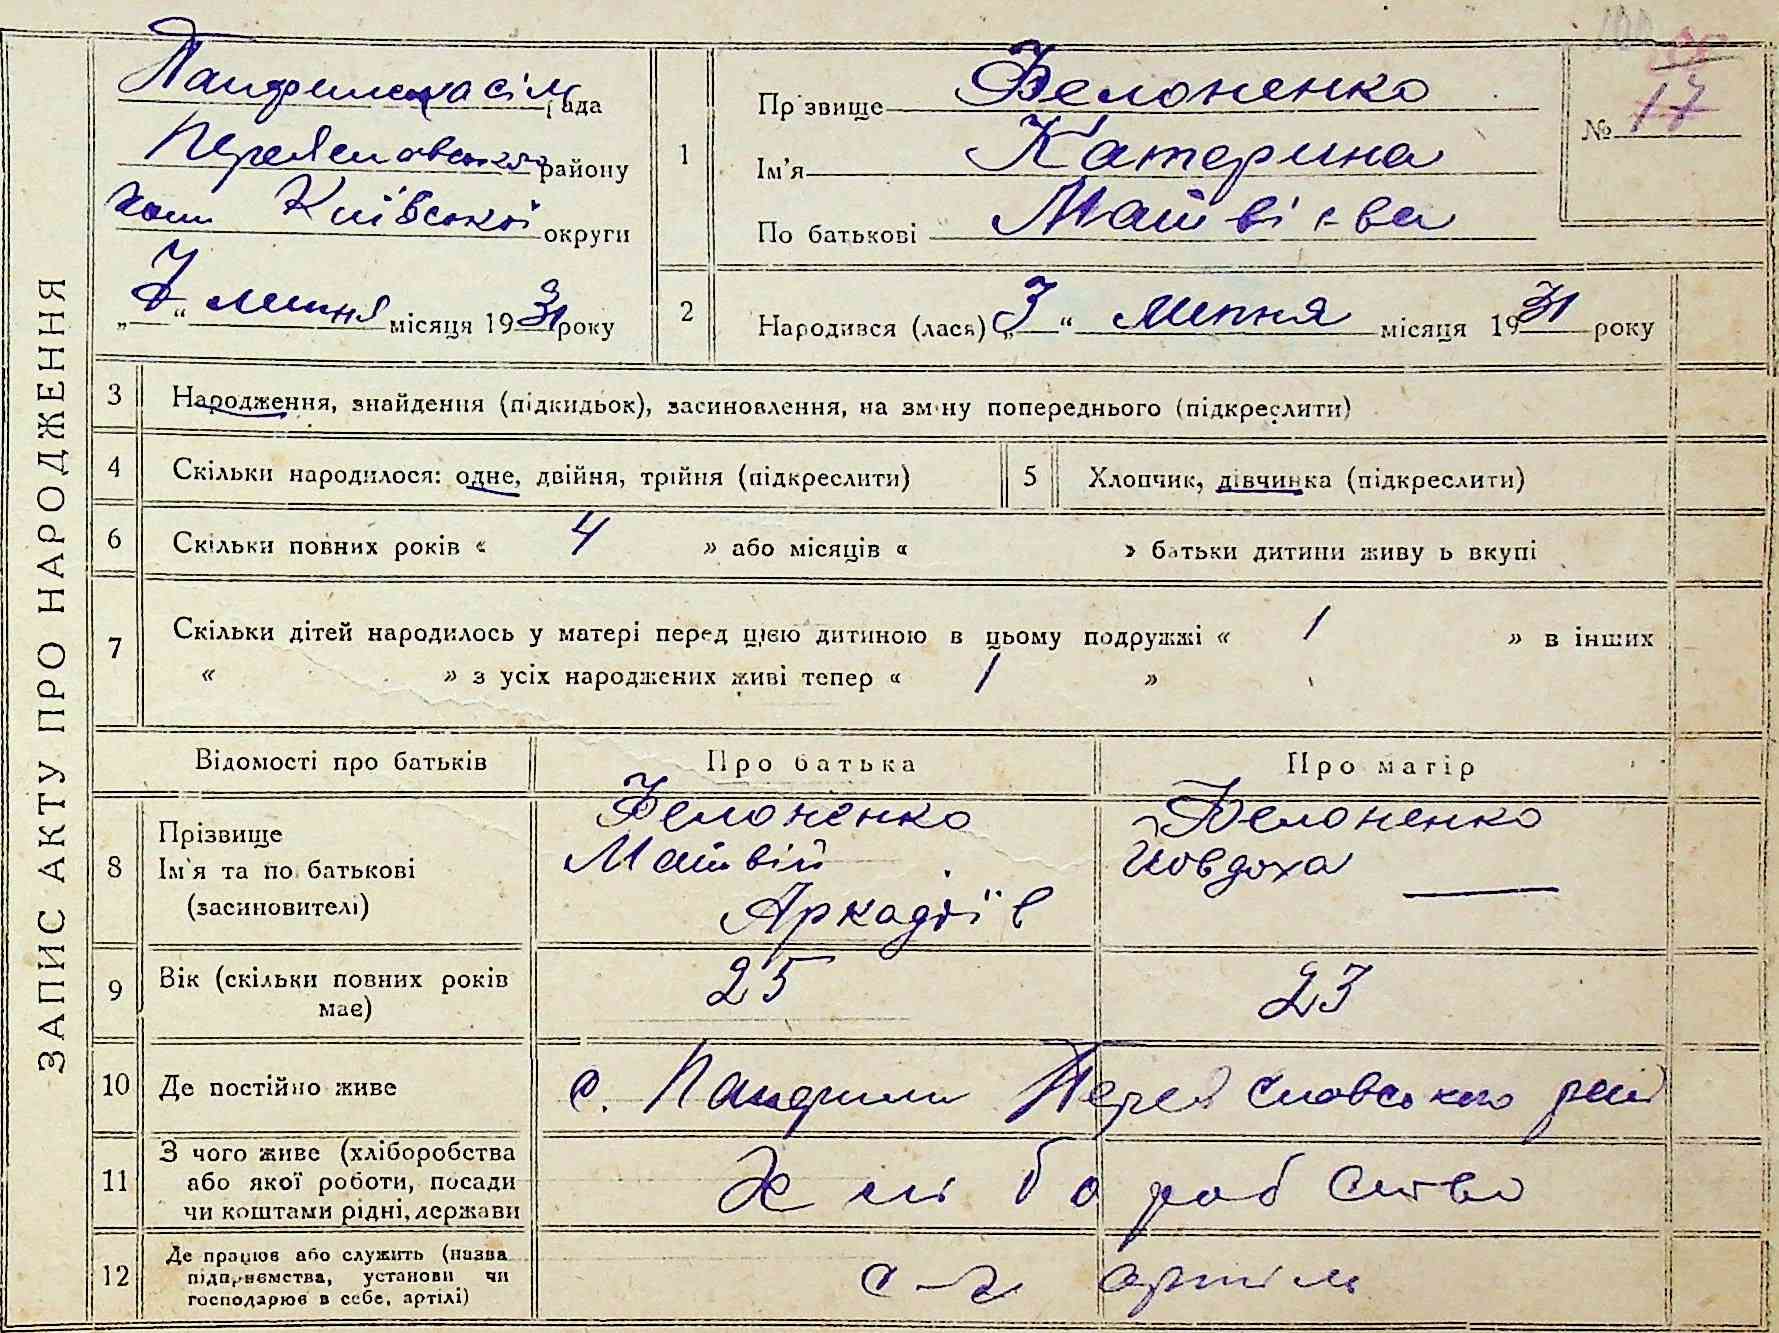 ЗАПИС АКТУ ПРО НАРОДЖЕННЯ
сіль рада
Переяславського району
Київської округи
„7“ липня місяця 1931 року
1
Прізвище Фелоненко
Ім'я Катерина
По батькові Матвієва
№ 17
2
Народився (лася) „3“ липня місяця 1931 року
3 Народження, знайдення (підкидьок), засиновлення, на зміну попереднього (підкреслити)
4 Скільки народилося: одне, двійня, трійня (підкреслити)
5 Хлопчик, дівчинка (підкреслити)
6 Скільки повних років « 4 » або місяців « » батьки дитини живуть вкупі
7 Скільки дітей народилось у матері перед цією дитиною в цьому подружжі « 1 » в інших
« » з усіх народжених живі тепер « 1 »
Відомості про батьків
Про батька
Про матір
8 Прізвище
Ім'я та по батькові
(засновителі)
Фелоненко
Матвій
Аркадіїв
Фелоненко
Йовдоха —
9 Вік (скільки повних років
має)
25
23
10 Де постійно живе
с. Переяславського рай
11 З чого живе (хліборобства
або якої роботи, посади
чи коштами рідні, держави
Хліборобство
12 Де працює або служить (назва
підприємства, установи чи
господарює в себе, артілі)
с-г артіль